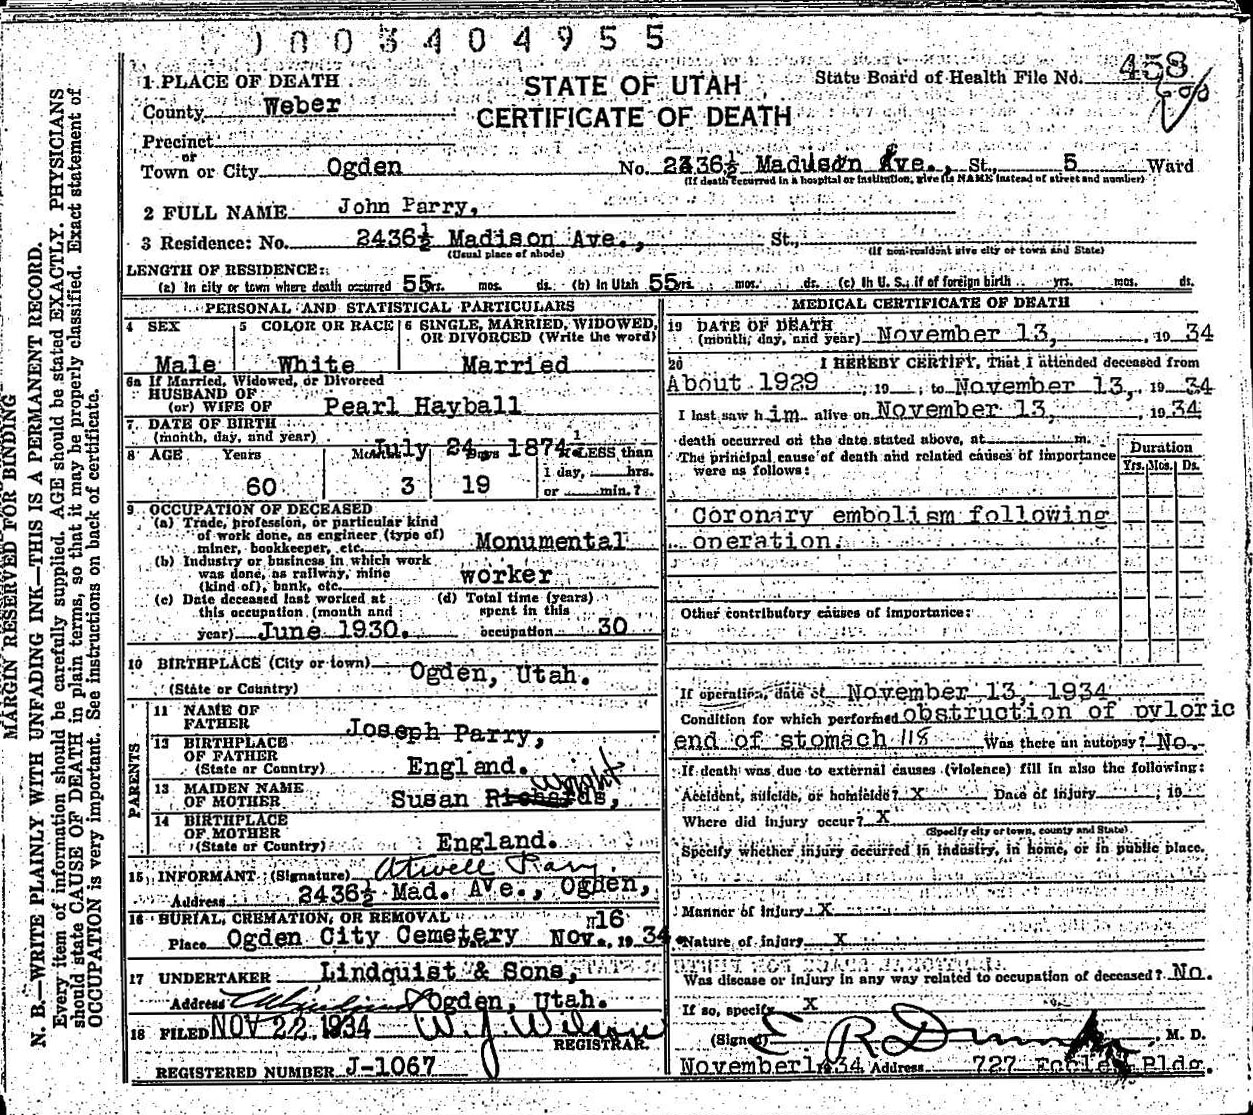 1003404955
1 PLACE OF DEATH
County Weber
Precinct
or
Town or City Ogden
STATE OF UTAH
CERTIFICATE OF DEATH
State Board of Health File No. 458
No. 2436½ Madison Ave., St., 5 Ward
(If death occurred in a hospital or institution, give its NAME instead of street and number)
2 FULL NAME John Parry,
3 Residence: No. 2436½ Madison Ave., St.,
(Usual place of abode) (If non-resident give city or town and State)
LENGTH OF RESIDENCE:
(a) In city or town where death occurred 55 yrs. mos. ds. (b) In Utah 55 yrs. mos. ds. (c) In U. S., if of foreign birth yrs. mos. ds.
PERSONAL AND STATISTICAL PARTICULARS
4 SEX
Male
5 COLOR OR RACE
White
6 SINGLE, MARRIED, WIDOWED,
OR DIVORCED (Write the word)
Married
6a If Married, Widowed, or Divorced
HUSBAND OF
(or) WIFE OF Pearl Hayball
7 DATE OF BIRTH
(month, day, and year) July 24, 1874.
8 AGE Years Months Days If LESS than
1 day, hrs.
60 3 19 or min.?
9 OCCUPATION OF DECEASED
(a) Trade, profession, or particular kind
of work done, as engineer (type of)
miner, bookkeeper, etc. Monumental
(b) Industry or business in which work
was done, as railway, mine
(kind of), bank, etc. worker
(c) Date deceased last worked at
this occupation (month and
year) June 1930.
(d) Total time (years)
spent in this
occupation 30
10 BIRTHPLACE (City or town) Ogden, Utah.
(State or Country)
PARENTS
11 NAME OF
FATHER Joseph Parry,
12 BIRTHPLACE
OF FATHER
(State or Country) England.
13 MAIDEN NAME
OF MOTHER Susan Richards, Wright
14 BIRTHPLACE
OF MOTHER
(State or Country) England.
15 INFORMANT (Signature) Atwell Parry.
Address 2436½ Mad. Ave., Ogden,
16 BURIAL, CREMATION, OR REMOVAL
Place Ogden City Cemetery Date Nov. 16, 1934.
17 UNDERTAKER Lindquist & Sons,
Address Ogden, Utah.
18 FILED NOV 22 1934 W. J. Wilson
REGISTRAR.
REGISTERED NUMBER J-1067
MEDICAL CERTIFICATE OF DEATH
19 DATE OF DEATH
(month, day, and year) November 13, , 19 34
20 I HEREBY CERTIFY, That I attended deceased from
About 1929 , 19 , to November 13, , 19 34
I last saw him alive on November 13, , 19 34
death occurred on the date stated above, at m.
The principal cause of death and related causes of importance
were as follows:
Duration
Yrs. Mos. Ds.
Coronary embolism following
operation.
Other contributory causes of importance:
If operation, date of November 13, 1934
Condition for which performed obstruction of pyloric
end of stomach 118 Was there an autopsy? No.
If death was due to external causes (violence) fill in also the following:
Accident, suicide, or homicide? X Date of injury , 19
Where did injury occur? X
(Specify city or town, county and State)
Specify whether injury occurred in industry, in home, or in public place.
Manner of injury X
Nature of injury X
Was disease or injury in any way related to occupation of deceased? No.
If so, specify X
(Signed) E R , M. D.
November 1934 Address 727 Eccles Bldg.
MARGIN RESERVED FOR BINDING
N. B.—WRITE PLAINLY WITH UNFADING INK—THIS IS A PERMANENT RECORD.
Every item of information should be carefully supplied. AGE should be stated EXACTLY. PHYSICIANS
should state CAUSE OF DEATH in plain terms, so that it may be properly classified. Exact statement of
OCCUPATION is very important. See instructions on back of certificate.